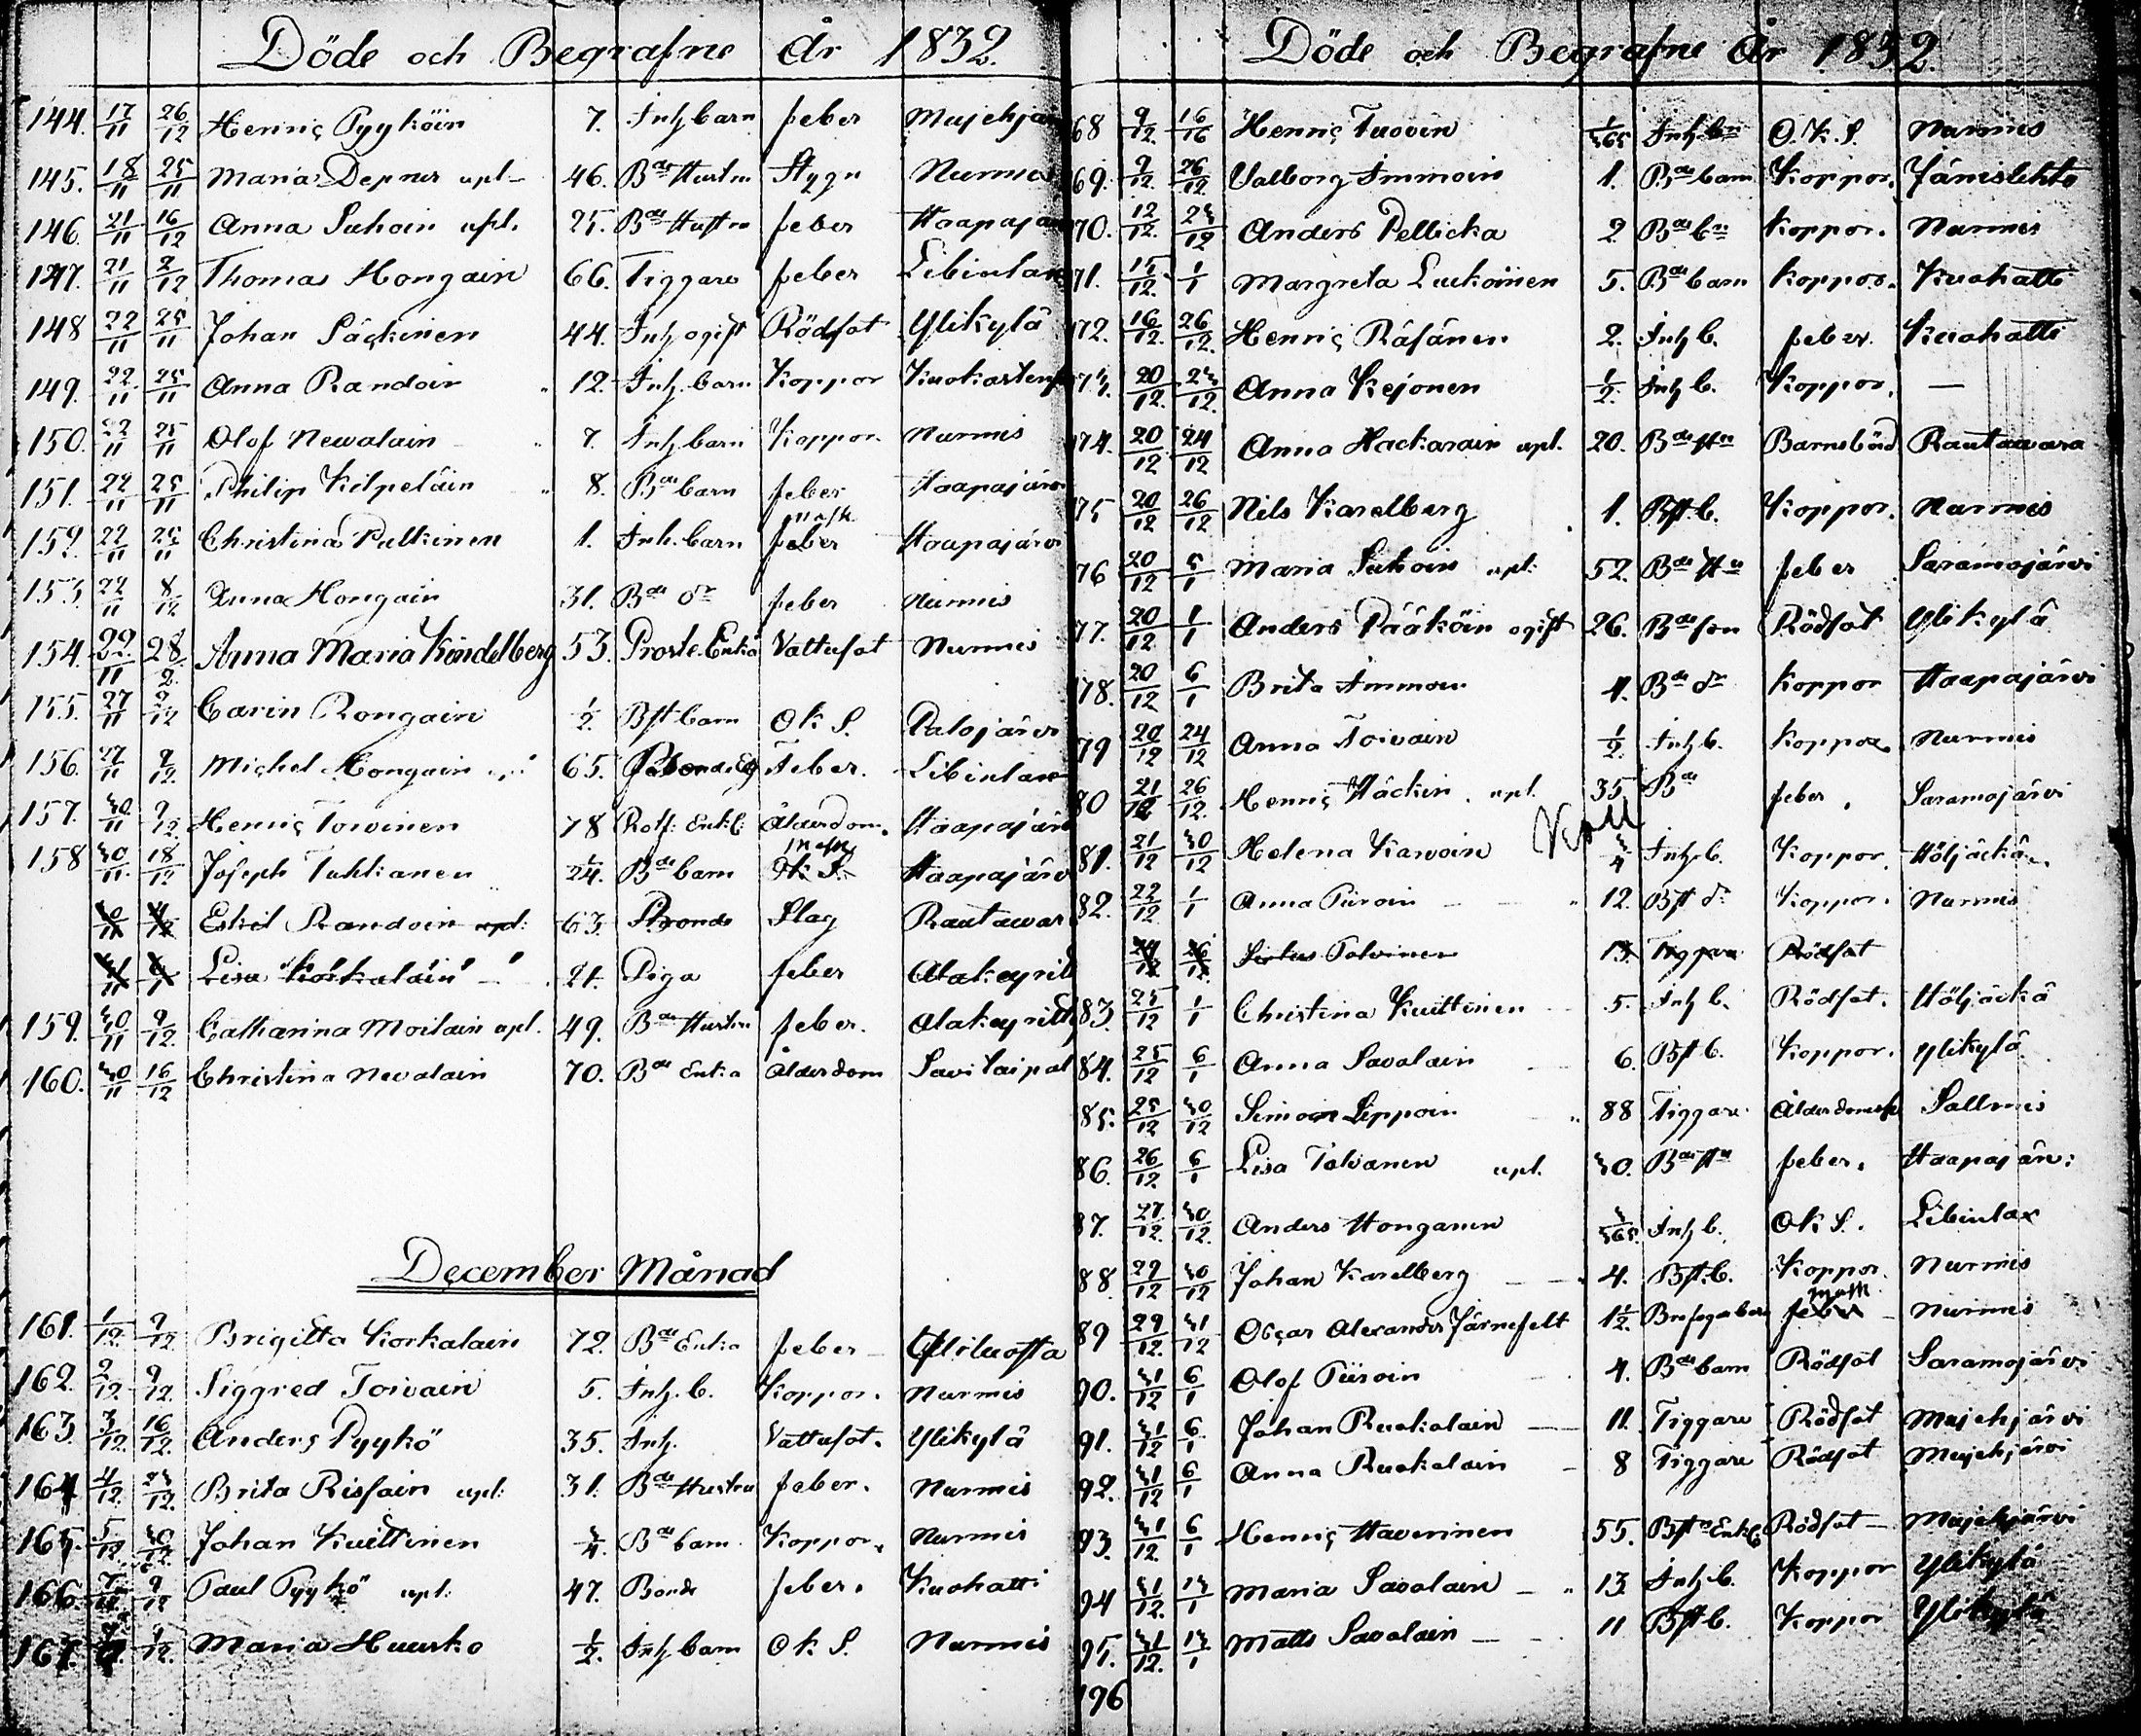 Döde och Begrafne år 1832.
144. 17/11 26/12 Henric Pyyköin 7. Inh barn feber Mujehjär
145. 18/11 25/11 Maria Depner upl- 46. Bde Hustru Stygn Nurmis
146. 21/11 16/12 Anna Suhoin upl. 25. Bde Hustru feber Haapajär
147. 21/11 2/12 Thomas Hongain 66. Tiggare feber Libinlax
148 22/11 25/11 Johan Säckinen 44. Inh ogift Rödsot Ylikylä
149. 22/11 25/11 Anna Randoin 12. Inh. barn Koppor
150. 22/11 25/11 Olof Nevalain 7. Inh barn Koppor. Nurmis
151. 22/11 25/11 Philip Kilpeläin 8. Bde barn feber Haapajärv
152. 22/11 25/11 Christina Pulkinen 1. Inh. barn feber Haapajärvi
153. 22/11 8/12 Anna Hongain 31. Bde dr feber Nurmis
154. 22/11 28/2 Anna Maria Köndelberg 53. Proste.Enka Vattusot Nurmis
155. 27/11 9/12 Carin Rongain 1/2 Bst barn Ok S. Palojärvi
156. 27/11 9/12 Michel Hongain upl 65. Feber. Libinlax
157. 30/11 9/12 Henric Toivinen 78 Rotf: Enkl: Ålderdom. Haapajärv
158 30/11 18/12 Joseph Tuhkanen 1/24. Bde barn Ok S. Haapajärv
30/11 Eskil Randoin upl: 63 Bonde Slag Rautawar
Lisa Korkalain 21. Piga feber Alakeyrit
159. 30/11 9/12 Catharina Moilain upl. 49. Bde Hustru feber. Alakeyritty
160. 30/11 16/12 Christina Nevalain 70. Bde Enka Ålderdom Savitaipal
December Månad
161. 1/12. 9/12 Brigitta Korkalain 72. Bde Enka feber
162. 2/12. 9/12. Siggred Toivain 5. Inh. b. Koppor. Nurmis
163. 3/12. 16/12. Anders Pyykö 35. Inh. Vattusot. Ylikylä
164 4/12. 23/12. Brita Risfain upl: 31. Bde Hustru feber. Nurmis
165. 5/12. 30/12. Johan Kuittinen 3/4. Bde barn Koppor. Nurmis
166. 7/12. 9/12 Paul Pyykö upl: 47. Bonde feber. Kuohatti
167. 9/12. Maria Huurko 1/2. Inh barn Ok S. Nurmis
Döde och Begrafne År 1832.
68 9/12. 16/16 Henric Tuovin 1/365 Inh bn O. K. S. Nurmis
69. 9/12. 26/12 Valborg Immoin 1. Bde barn Koppor. Jänislehto
70. 12/12. 23/12 Anders Pellicka 2. Bde bn Koppor. Nurmis
71. 15/12. 1/1 Margreta Luckoinen 5. Bde barn Koppor. Kuohatti
172. 16/12. 26/12. Henric Räsänen 2. Inh b. feber. Kuohatti
173. 20/12. 23/12. Anna Kejonen 1/2. Inh b. Koppor. —
174. 20/12 24/12 Anna Hackarain upl. 20. Bde Hu Barnsbörd Rautavara
75 20/12 26/12 Nils Karelberg 1. Bst. b. Koppor. Nurmis
76 20/12 5/1 Maria Suhoin upl: 52. Bde Hu feber Saramojärvi
77. 20/12 1/1 Anders Pääköin ogift 26. Bde son Rödsot Ylikylä
178. 20/12 6/1 Brita Immoin 4. Bde dr Koppor Haapajärvi
79 20/12 24/12 Anna Toivain 1/2. Inh b. Koppor. Nurmis
80 21/12 26/12. Henric Häckin. upl. 35. Bde feber. Saramojärvi
81. 21/12 30/12 Helena Karvoin 3/4 Inh. b. Koppor. Höljäckä
82. 22/12 1/1 Anna Piiroin 12. Bst dr Koppor. Nurmis
24/12 26/12 Tolvinen 13. Tiggare Rödsot
83. 25/12 1/1 Christina Kuittinen 5. Inh b. Rödsot. Höljäckä
84. 25/12 6/1 Anna Savolain 6. Bst b. Koppor. Ylikylä
85. 25/12 30/12 Simoin Lippoin 88 Tiggare Ålderdom Sallmis
86. 26/12. 6/1 Lisa Tolvanen upl. 30. Bde Hu feber. Haapajär:
87. 27/12. 30/12. Anders Honganen 3/365. Inh b. Ok S. Libinlax
88. 29/12 30/12 Johan Karelberg 4. Bst. b. Koppor. Nurmis
89 29/12. 31/12 Oscar Alexander Järnefelt 1 1/2. feber Nurmis
90. 31/12 6/1 Olof Piiroin 4. Bde barn Rödsot Saramojärvi
91. 31/12 6/1 Johan Ruokolain 11. Tiggare Rödsot Mujehjärvi
92. 31/12 6/1 Anna Ruokolain 8 Tiggare Rödsot Mujehjärvi
93. 31/12. 6/1 Henric Haverinen 55. Bst Enkl Rödsot Mujehjärvi
94 31/12. 13/1 Maria Savolain 13. Inh b. Koppor Ylikylä
95. 31/12. 13/1 Matts Savolain 11 Bst b. Koppor Ylikylä
196